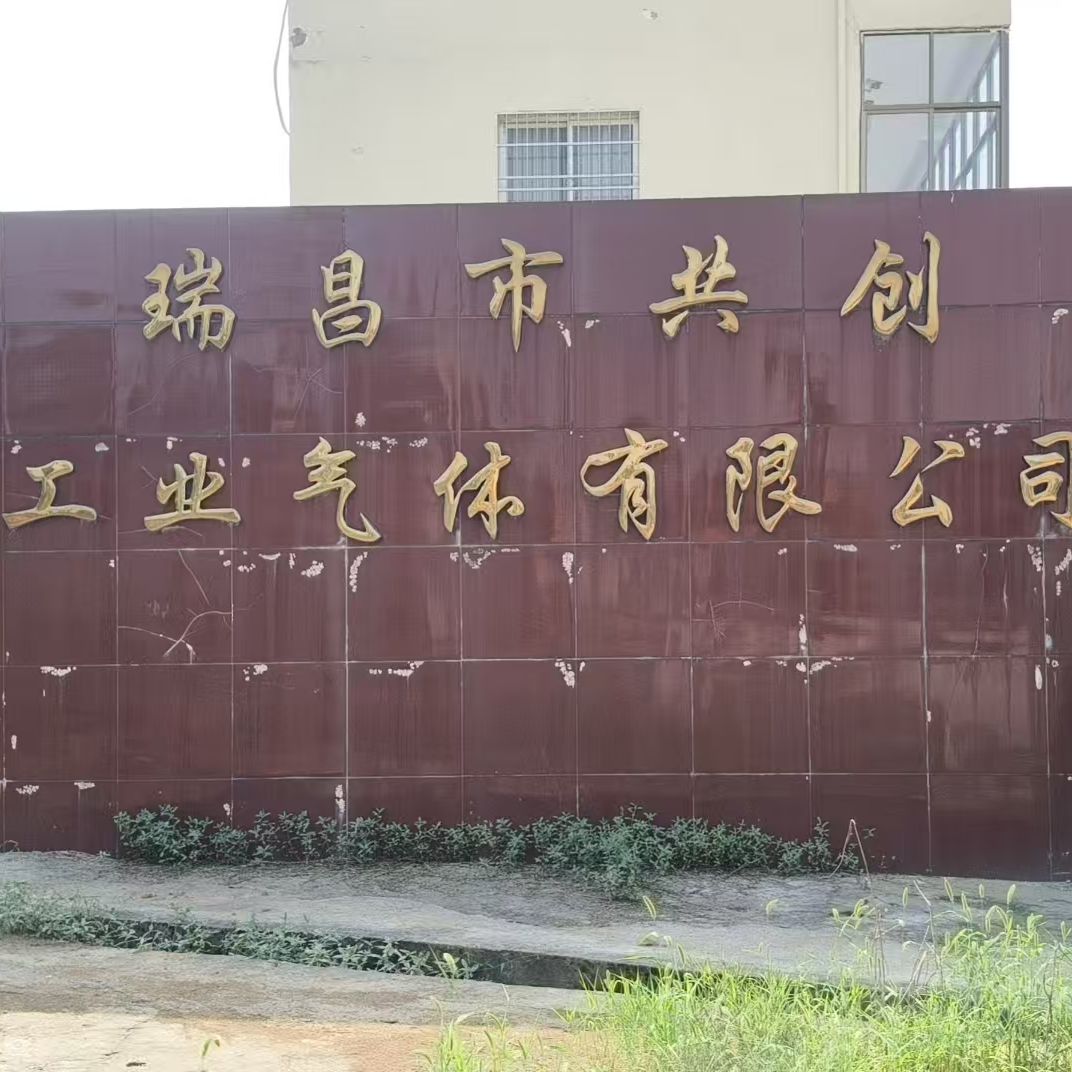 瑞昌市共创
工业气体有限公司